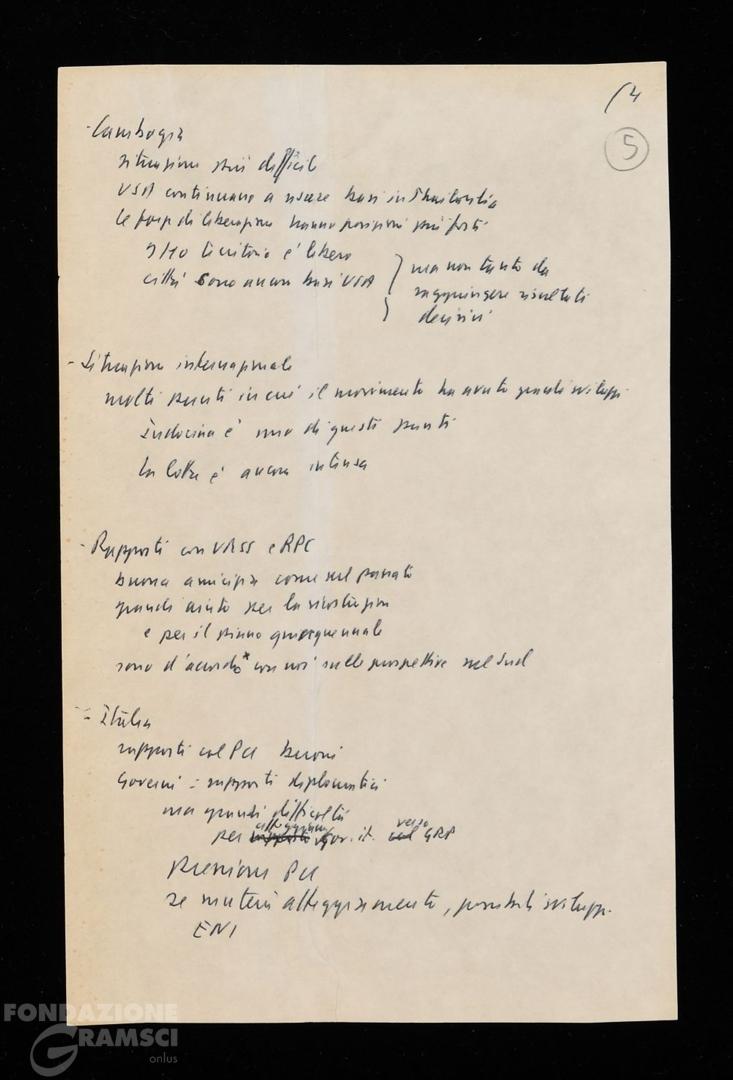 (4
5
- Cambogia
situazione più difficile
USA continuano a usare basi in Thailandia
le forze di liberazione hanno posizioni più forti
9/10 territorio è libero
città sono ancora basi USA
ma non tanto da
raggiungere risultati
decisivi
- Situazione internazionale
molti punti in cui il movimento ha avuto grandi sviluppi
Indocina è uno di questi punti
La lotta è ancora intensa
- Rapporti con URSS e RPC
buona amicizia come nel passato
grandi aiuto per la ricostruzione
e per il piano quinquennale
sono d'accordo con noi sulle prospettive nel Sud
- Italia
rapporti col PCI buoni
Governi = rapporti diplomatici
ma grandi difficoltà
per atteggiam. Gov. it. verso GRP
pressione PCI
se muterà atteggiamento, possibili sviluppi
ENI
FONDAZIONE
GRAMSCI
onlus